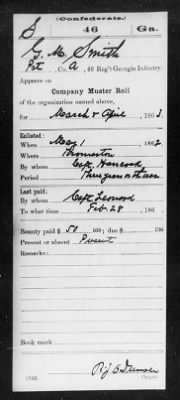 (Confederate.)
S 46 Ga.
G. M. Smith
Pvt, Co. A, 46 Reg't Georgia Infantry.
Appears on
Company Muster Roll
of the organization named above,
for March & April, 1863.
Enlisted:
When May 1, 1862
Where Thomaston
By whom Capt. Hancock
Period Three years or the war
Last paid:
By whom Capt. Leonard
To what time Feb. 28, 186
Bounty paid $ 50 100; due $ 100
Present or absent Present
Remarks:
Book mark:
(642)
Copyist.